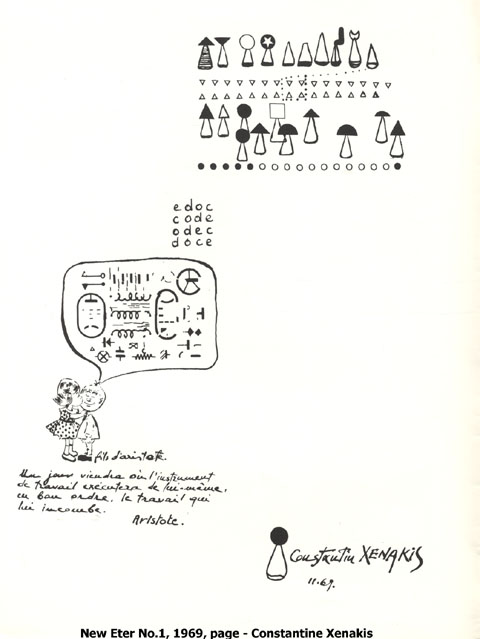 edoc
code
odec
doce
fils d'aristote.
Un jour viendra où l'instrument
de travail exécutera de lui-même,
en bon ordre, le travail qui
lui incombe.
Aristote.
Constantin XENAKIS
11.69.
New Eter No.1, 1969, page - Constantine Xenakis